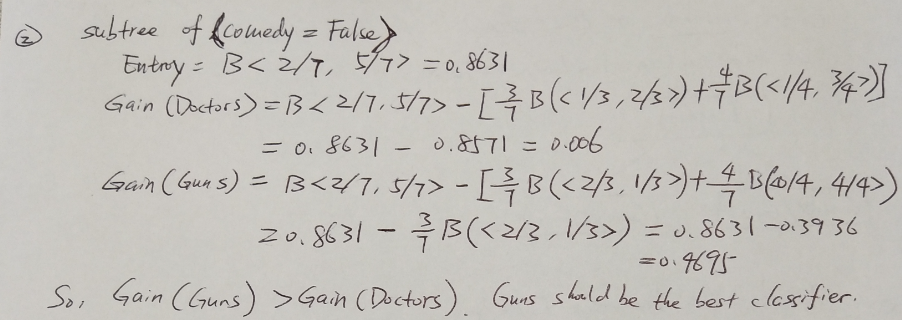 ② subtree of {comedy = False}
Entroy = B< 2/7, 5/7> = 0.8631
Gain (Doctors) = B< 2/7, 5/7> - [3/7 B(<1/3, 2/3>) + 4/7 B(<1/4, 3/4>)]
= 0.8631 - 0.8571 = 0.006
Gain (Guns) = B<2/7, 5/7> - [3/7 B(<2/3, 1/3>) + 4/7 B(<0/4, 4/4>)
= 0.8631 - 3/7 B(<2/3, 1/3>) = 0.8631 - 0.3936
= 0.4695
So, Gain (Guns) > Gain (Doctors). Guns should be the best classifier.